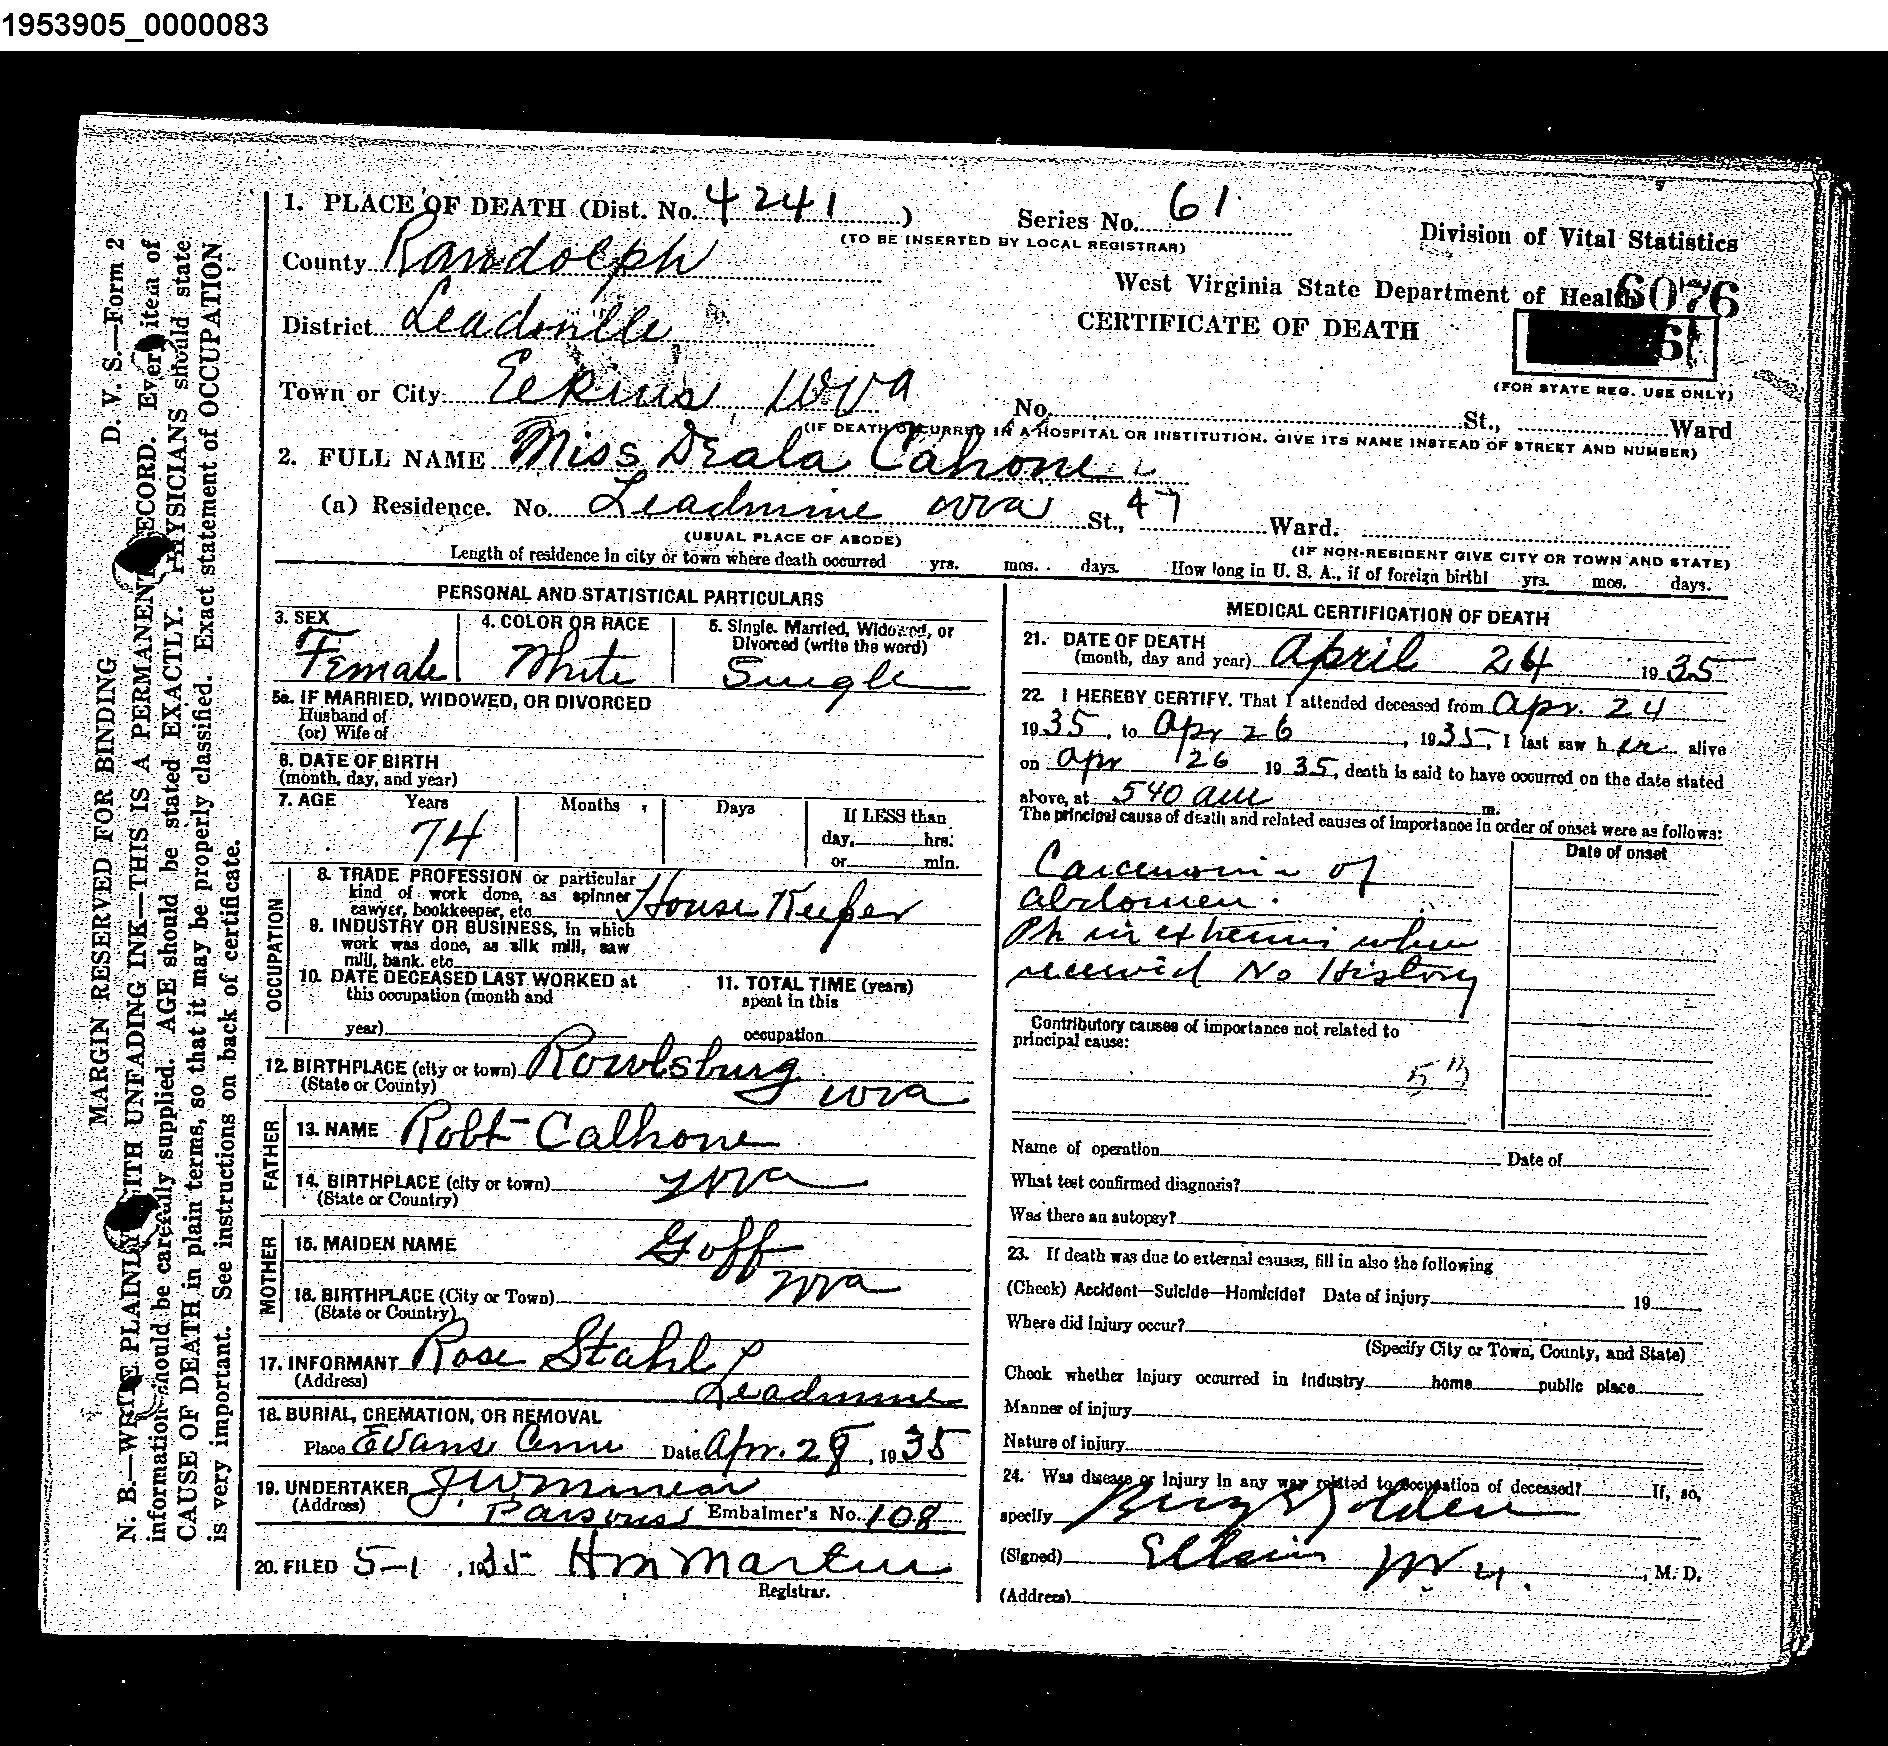 1953905_0000083
D. V. S.—Form 2
MARGIN RESERVED FOR BINDING
N. B.—WRITE PLAINLY WITH UNFADING INK—THIS IS A PERMANENT RECORD. Every item of
information should be carefully supplied. AGE should be stated EXACTLY. PHYSICIANS should state
CAUSE OF DEATH in plain terms, so that it may be properly classified. Exact statement of OCCUPATION
is very important. See instructions on back of certificate.
1. PLACE OF DEATH (Dist. No. 4241 )
Series No. 61
(TO BE INSERTED BY LOCAL REGISTRAR)
Division of Vital Statistics
County Randolph
West Virginia State Department of Health
6076
District Leadville
CERTIFICATE OF DEATH
(FOR STATE REG. USE ONLY)
Town or City Elkins, W Va
No. St., Ward
(IF DEATH OCCURRED IN A HOSPITAL OR INSTITUTION, GIVE ITS NAME INSTEAD OF STREET AND NUMBER)
2. FULL NAME Miss Deala Cahone
(a) Residence. No. Leadmine Wva St., 47 Ward.
(USUAL PLACE OF ABODE)
(IF NON-RESIDENT GIVE CITY OR TOWN AND STATE)
Length of residence in city or town where death occurred yrs. mos. days. How long in U. S. A., if of foreign birth! yrs. mos. days.
PERSONAL AND STATISTICAL PARTICULARS
3. SEX
Female
4. COLOR OR RACE
White
5. Single, Married, Widowed, or
Divorced (write the word)
Single
5a. IF MARRIED, WIDOWED, OR DIVORCED
Husband of
(or) Wife of
6. DATE OF BIRTH
(month, day, and year)
7. AGE Years Months Days If LESS than
74
day, hrs.
or min.
OCCUPATION
8. TRADE PROFESSION or particular
kind of work done, as spinner
sawyer, bookkeeper, etc. House Keeper
9. INDUSTRY OR BUSINESS, in which
work was done, as silk mill, saw
mill, bank. etc.
10. DATE DECEASED LAST WORKED at
this occupation (month and
year)
11. TOTAL TIME (years)
spent in this
occupation
12. BIRTHPLACE (city or town) Rowlsburg
(State or County) Wva
FATHER
13. NAME Robt Calhone
14. BIRTHPLACE (city or town) Wva
(State or Country)
MOTHER
15. MAIDEN NAME Goff
16. BIRTHPLACE (City or Town) Wva
(State or Country)
17. INFORMANT Rose Stahl
(Address) Leadmine
18. BURIAL, CREMATION, OR REMOVAL
Place Evans Cem Date Apr. 28, 1935
19. UNDERTAKER J.W Minear
(Address) Parsons Embalmer's No. 108
20. FILED 5-1, 1935 Hm Martin
Registrar.
MEDICAL CERTIFICATION OF DEATH
21. DATE OF DEATH
(month, day and year) April 24 1935
22. I HEREBY CERTIFY. That I attended deceased from Apr. 24
1935, to Apr 26, 1935, I last saw her alive
on Apr 26 1935, death is said to have occurred on the date stated
above, at 540 am m.
The principal cause of death and related causes of importance in order of onset were as follows:
Date of onset
Carcinoma of
abdomen.
Pt in extremis when
received No History
Contributory causes of importance not related to
principal cause:
Name of operation Date of
What test confirmed diagnosis?
Was there an autopsy?
23. If death was due to external causes, fill in also the following
(Check) Accident—Suicide—Homicide? Date of injury 19
Where did injury occur?
(Specify City or Town, County, and State)
Check whether injury occurred in industry home public place
Manner of injury
Nature of injury
24. Was disease or injury in any way related to occupation of deceased? If, so,
specify Golden
(Signed) Elkins W Va. , M. D.
(Address)